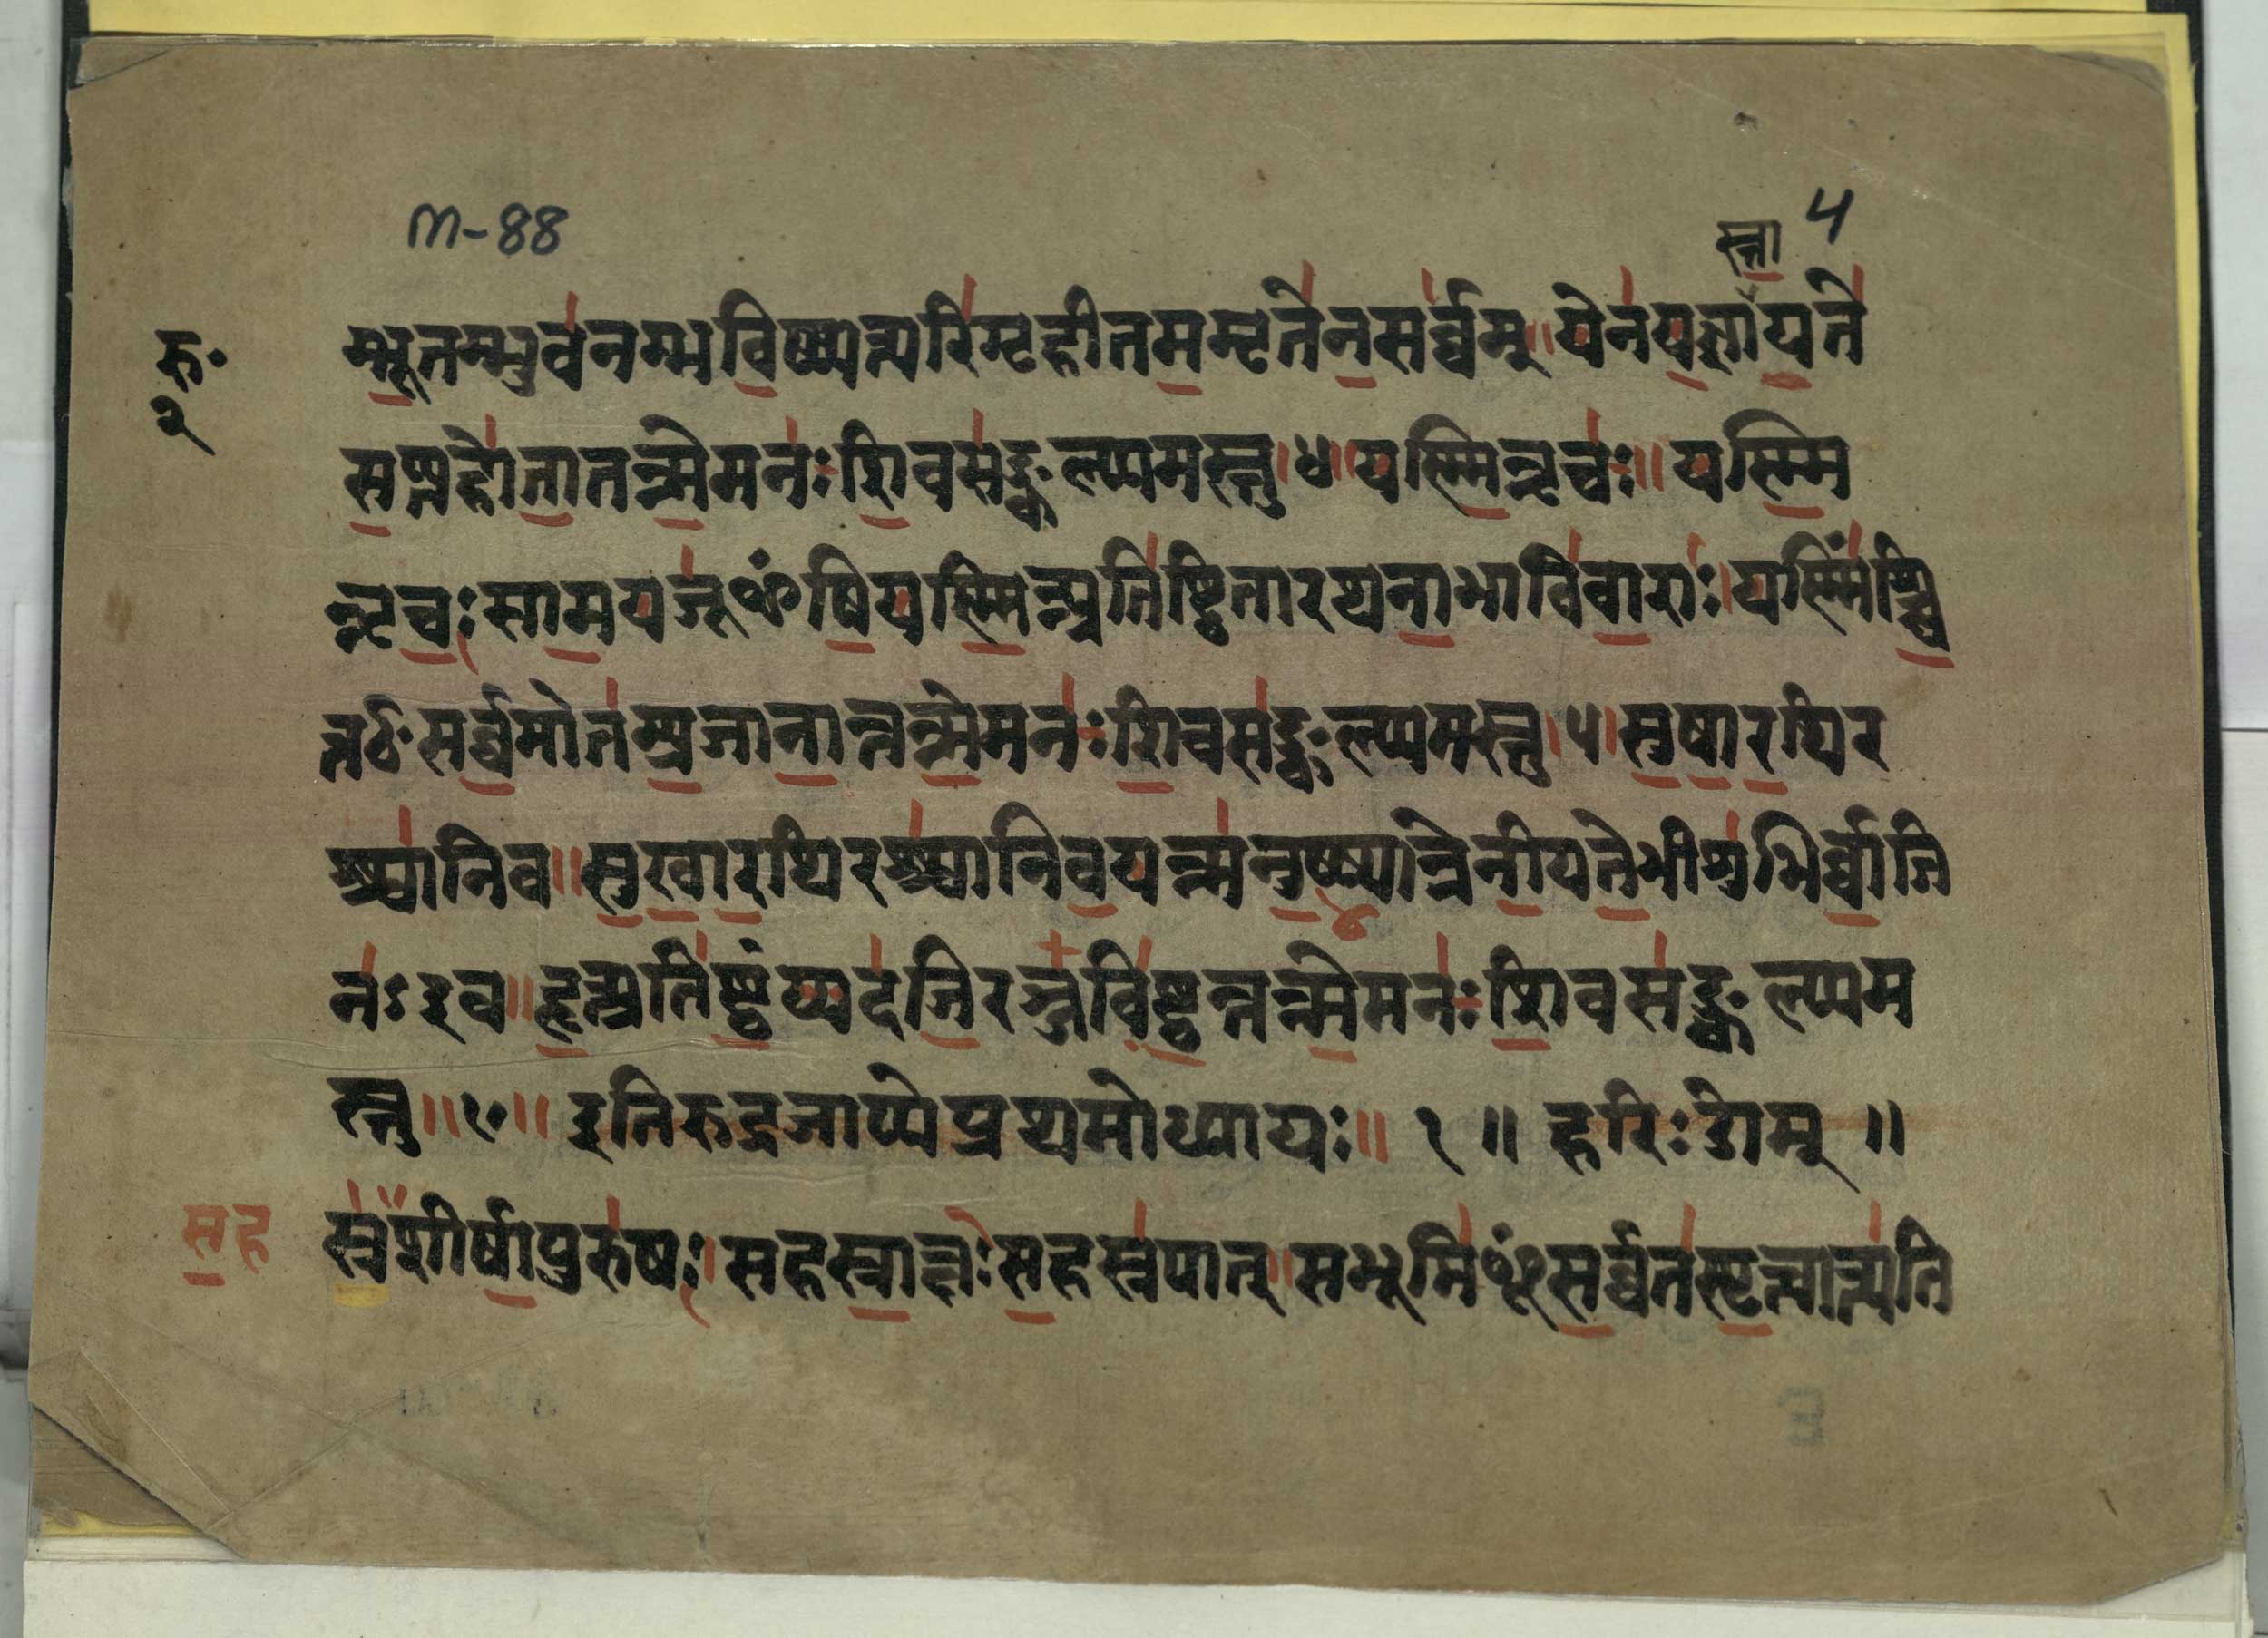 M-88
स्ता ५
रु॰ म्भूतम्भुवनम्भविष्यत्परिगृहीतममृतेनसर्व्वम् ॥ येनयज्ञायते
२
सप्तहोतातन्मेमनःशिवसङ्कल्पमस्तु ।४। यस्मिन्नृचः ॥ यस्मि
न्नृचःसामयजूᳯषियस्मिन्प्रतिष्ठितारथनाभाविवाराः । यस्मिँश्चि
त्तᳯसर्व्वमोतम्प्रजानान्तन्मेमनःशिवसङ्कल्पमस्तु ।५। सुषारथिर
श्वानिव ॥ सुखारथिरश्वानिवयन्मनुष्यान्नेनीयतेभीशुभिर्व्वाजि
नऽइव ॥ हृत्प्रतिष्ठंय्यदजिरञ्जविष्ठन्तन्मेमनःशिवसङ्कल्पम
स्तु ॥ ६ ॥ इतिरुद्रजाप्येप्रथमोध्यायः ॥ १ ॥ हरिःओम् ॥
सह स्रशीर्षापुरुषः । सहस्राक्षःसहस्रपात् । सभूमिᳯसर्व्वतस्पृत्वात्यति